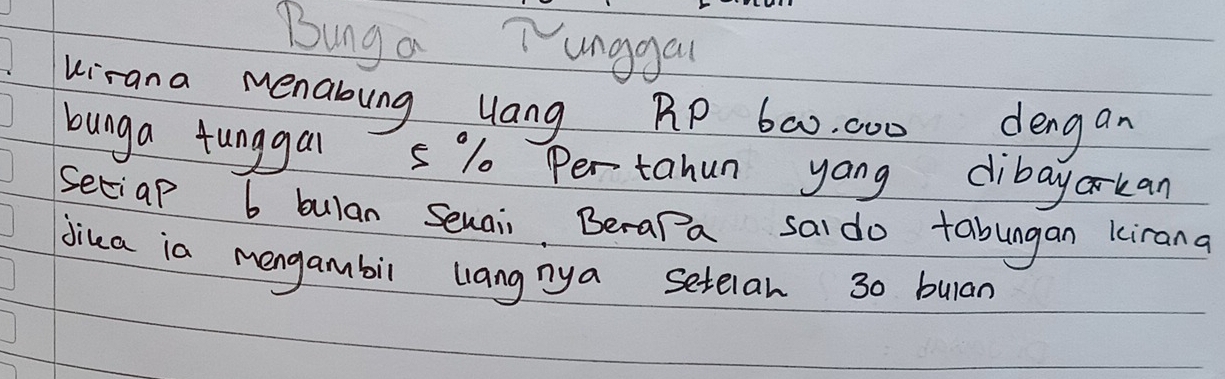 Bunga Tunggal
Kirana Menabung Uang RP 600.000 dengan
bunga tunggal 5% Per tahun yang dibayarkan
Setiap 6 bulan Sekali. Berapa saldo tabungan kirana
Jika ia mengambil uangnya setelah 30 bulan